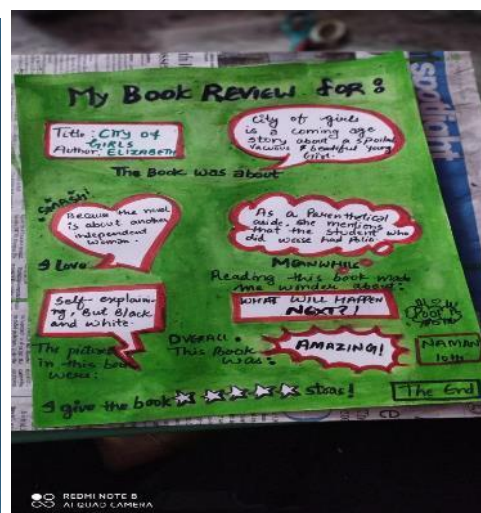 My BOOK REVIEW for :
Title : CITY OF
GIRLS
Author : ELIZABETH
City of girls
is a coming age
story about a spoiled
vacuous & beautiful young
Girl.
The Book was about
SMASH!
Because the novel
is about another
independent
woman.
I Love
As a Parenthetical
aside, she mentions
that the student who
did worse had Polio.
MEANWHILE
Reading this book made
me wonder about:
WHAT WILL HAPPEN
NEXT?!
Self-explain-
ing, But Black
and white.
The pictures
in this book
were:
OVERALL
This Book
was:
AMAZING!
NAMAN
10th
I give the book stras!
The End
spotlight
CD
REDMI NOTE 8
AI QUAD CAMERA